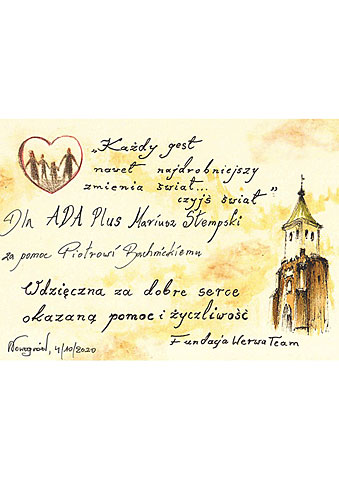 „Każdy gest
nawet najdrobniejszy
zmienia świat...
czyjś świat”
Dla ADA Plus Mariusz Stempski
za pomoc Piotrowi
Wdzięczna za dobre serce
okazaną pomoc i życzliwość
Fundacja Werwa Team
4/10/2020